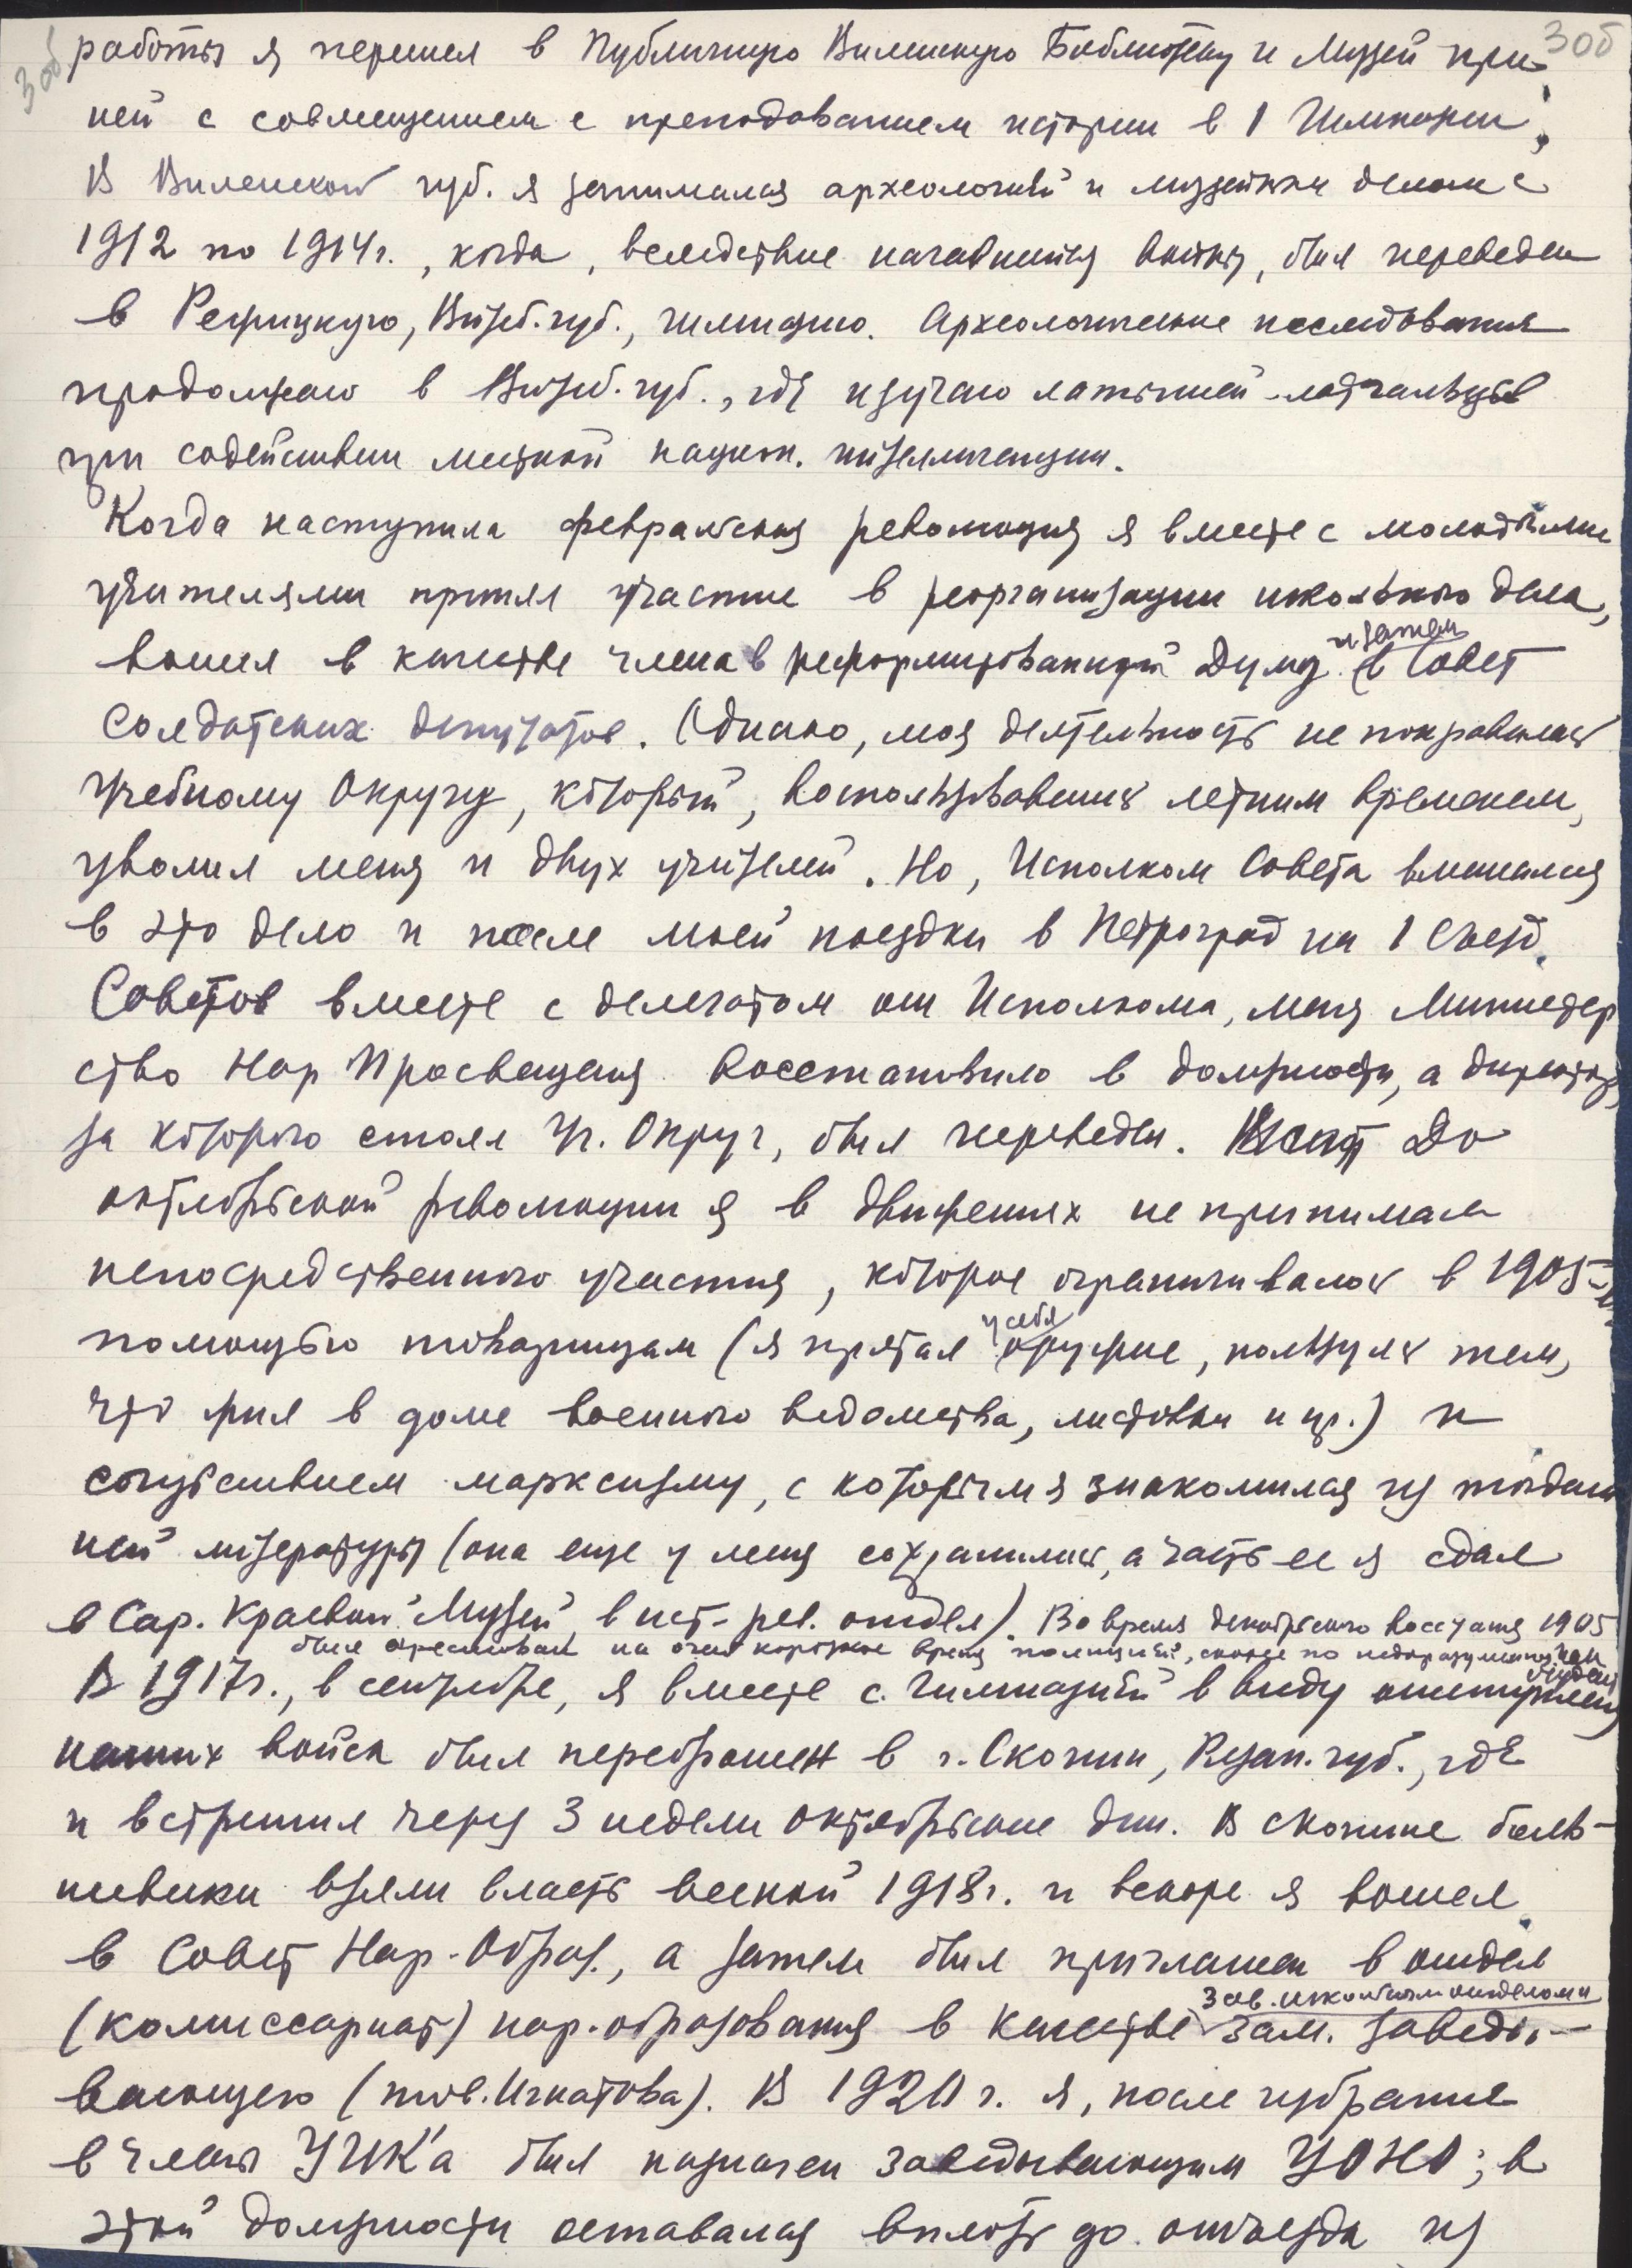 3об 3об
работы я перешел в Публичную Виленскую Библиотеку и Музей при
ней с совмещением с преподаванием истории в 1 Гимназии.
В Виленской губ. я занимался археологией и музейным делом с
1912 по 1914 г., когда, вследствие начавшейся войны, был переведен
в Режицкую, Витеб. губ., гимназию. Археологические исследования
продолжаю в Витеб. губ., где изучаю латышей-латгальцев
при содействии местной национ. интеллигенции.
Когда наступила февральская революция я вместе с молодыми
учителями принял участие в реорганизации школьного дела,
вошел в качестве члена в реформированную Думу и затем в Совет
Солдатских депутатов. Однако, моя деятельность не понравилась
Учебному Округу, который, воспользовавшись летним временем,
уволил меня и двух учителей. Но, Исполком Совета вмешался
в это дело и после моей поездки в Петроград на 1 Съезд
Советов вместе с делегатом от Исполкома, меня Министер
ство Нар Просвещения восстановило в должности, а директор,
за которого стоял Уч. Округ, был переведен. До
октябрьской революции я в движениях не принимал
непосредственного участия, которое ограничивалось в 1905
помощью товарищам (я прятал у себя оружие, пользуясь тем,
что жил в доме военного ведомства, листовки и пр.) и
сочувствием марксизму, с которым я знакомился из тогдаш
ней литературы (она еще у меня сохранилась, а часть ее я сдал
в Сар. Краевой Музей, в ист-рев. отдел). Во время декабрьского восстания 1905
был арестован на очень короткое время полицией, скорее по недоразумению как студент
В 1917 г., в сентябре, я вместе с гимназией в виду отступления
наших войск был переброшен в г. Скопин, Рязан. губ., где
и встретил через 3 недели октябрьские дни. В Скопине боль-
шевики взяли власть весной 1918 г. и вскоре я вошел
в Совет Нар. Образ., а затем был приглашен в отдел
(комиссариат) нар. образования в качестве зав. школьным отделом и зам. заведы-
вающего (тов. Игнатова). В 1920 г. я, после избрания
в члены УИК'а был назначен заведывающим УОНО; в
этой должности оставался вплоть до отъезда из